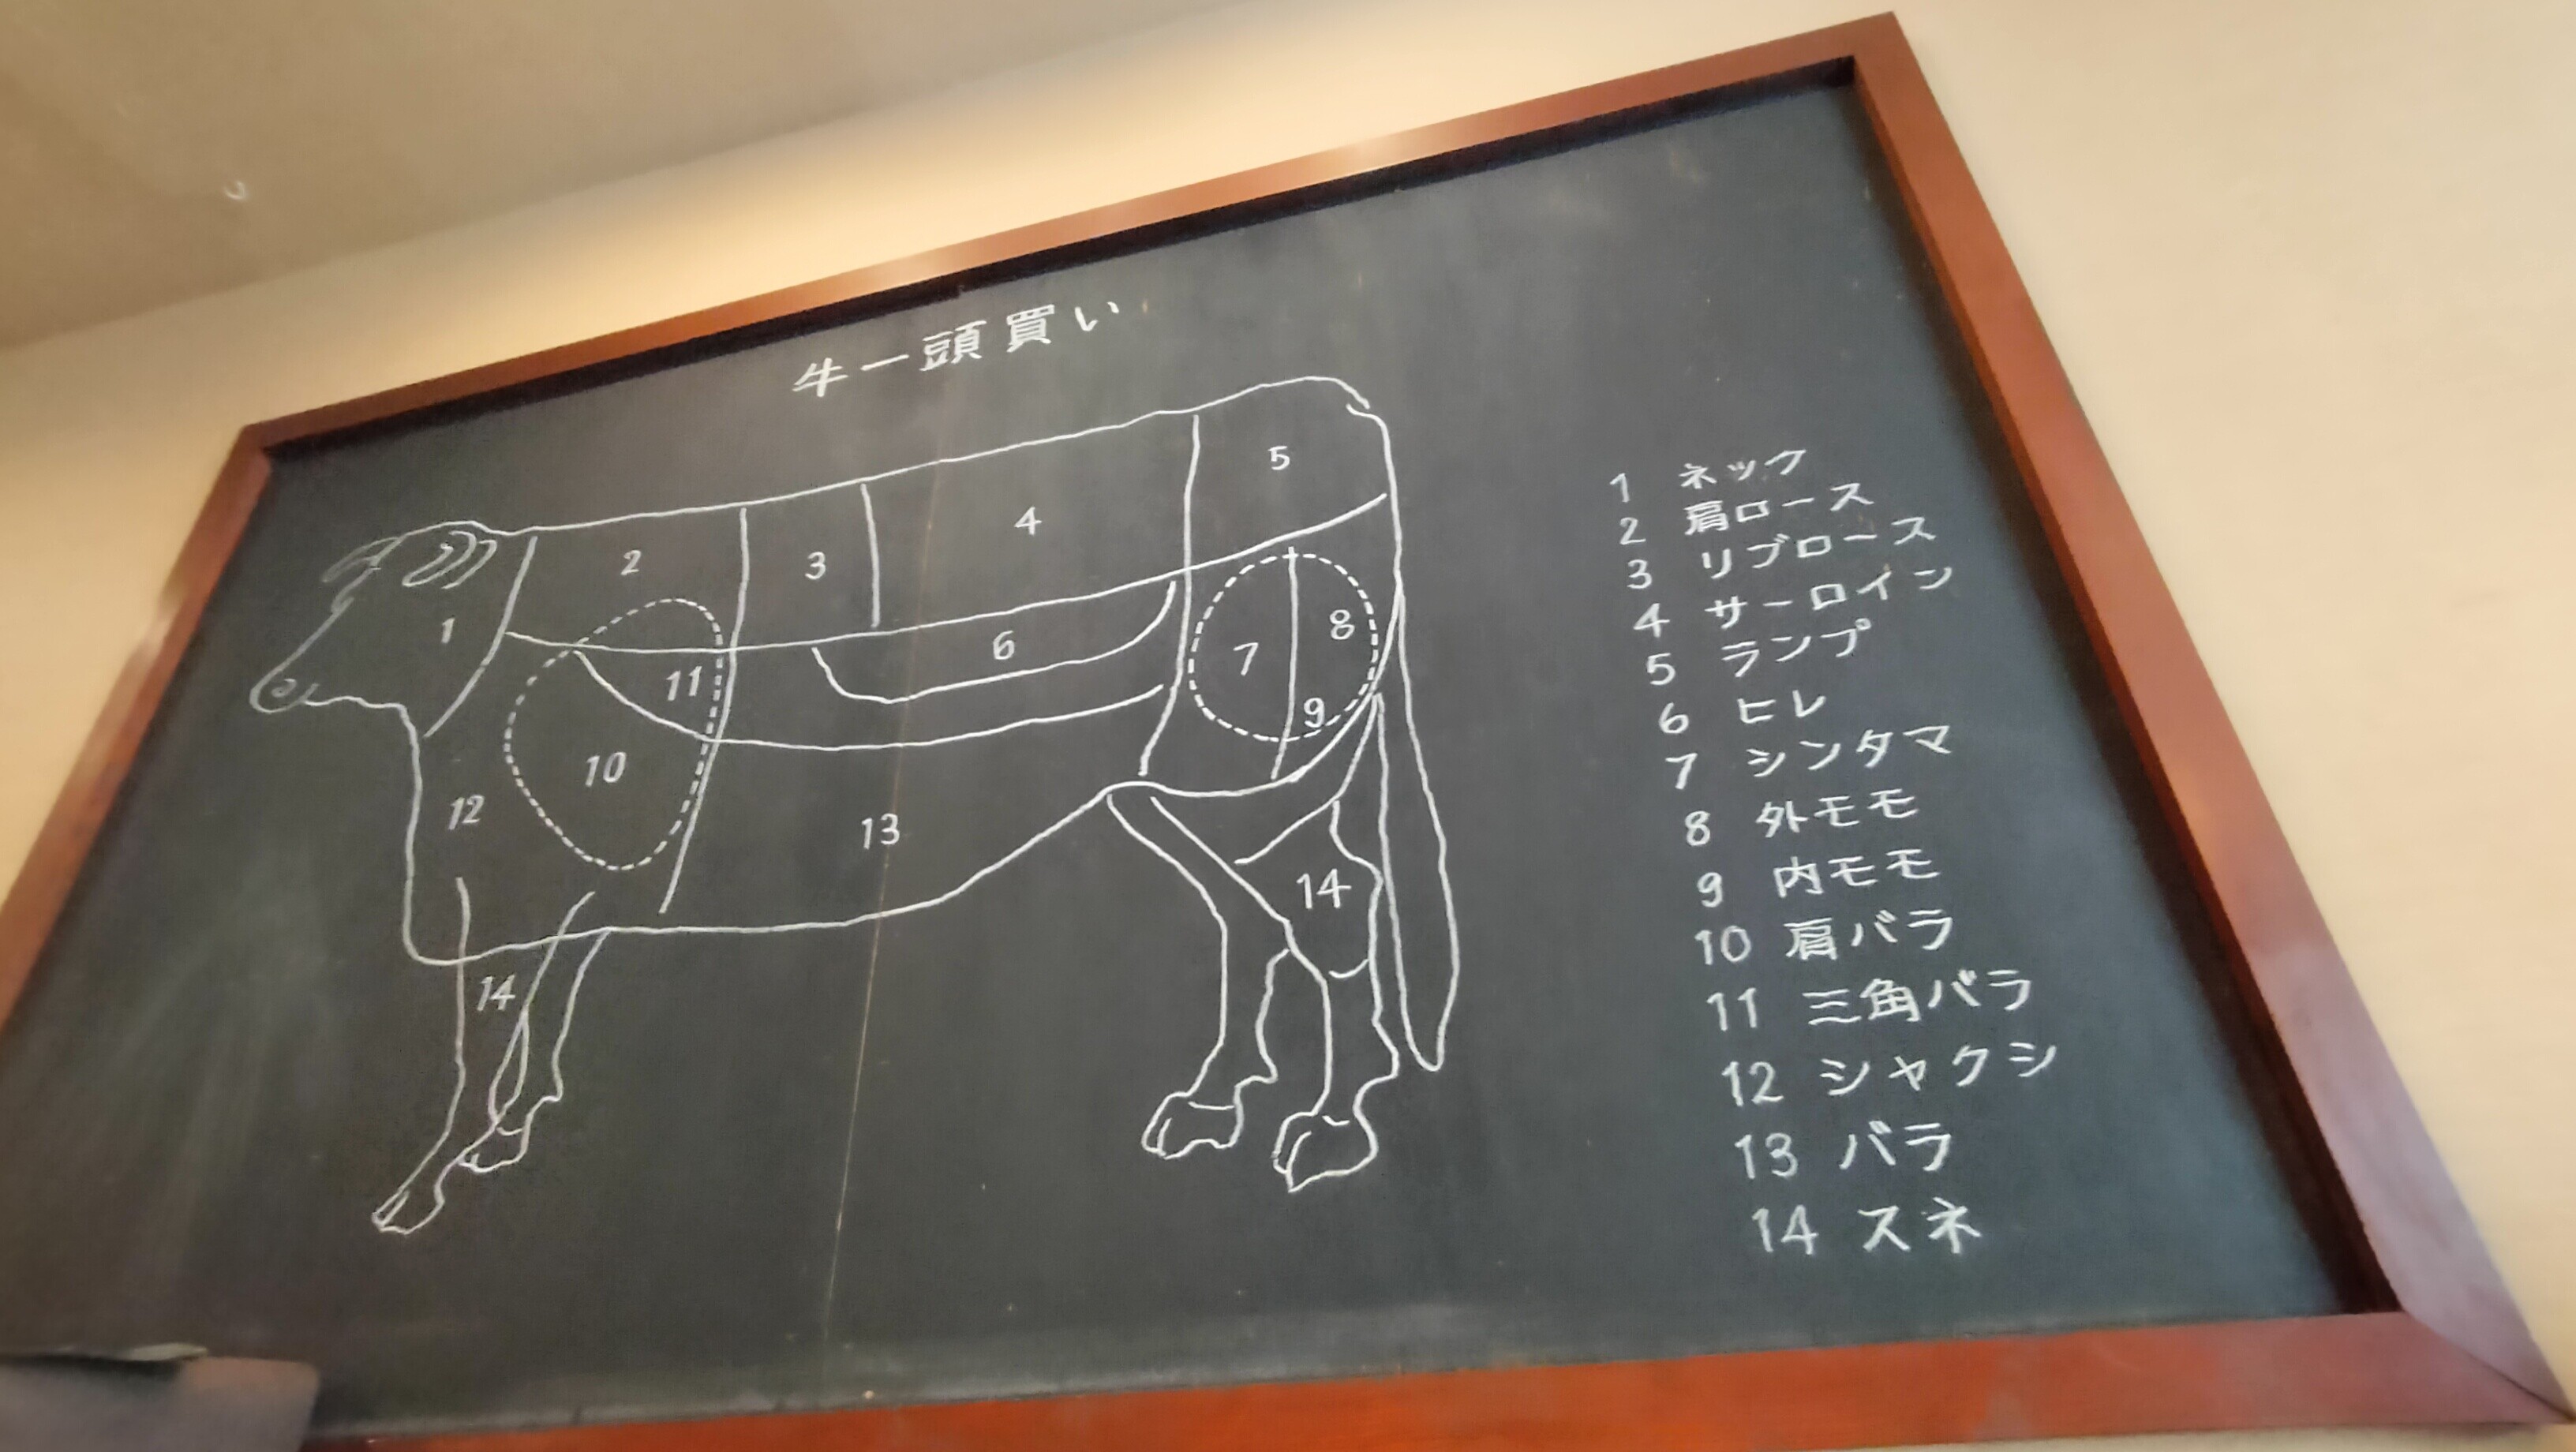 牛一頭買い
1 ネック
2 肩ロース
3 リブロース
4 サーロイン
5 ランプ
6 ヒレ
7 シンタマ
8 外モモ
9 内モモ
10 肩バラ
11 三角バラ
12 シャクシ
13 バラ
14 スネ
5
4
2
3
1
6
8
7
11
9
10
12
13
14
14